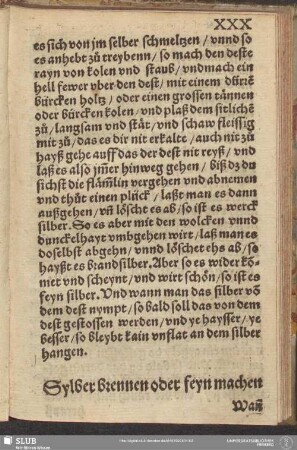 XXX
es sich von jm selber schmeltzen / vnnd so
es anhebt zů treybenn / so mach den deste
rayn von kolen vnd staub / vndmach ein
hell fewer vber den dest / mit einem dürrē
bürcken holtz / oder einen grossen tannen
oder bürcken kolen / vnd plaß dem sitlichē
zů / langsam vnd stät / vnd schaw fleissig
mit zů / das es dir nit erkalte / auch nit zů
hayß gehe auff das der dest nit reyß / vnd
laß es also jm̄er hinweg gehen / biß dz du
sichst die flām̄lin vergehen vnd abnemen
vnd thůt einen plück / laßt man es dann
außgehen / vn̄ löscht es ab / so ist es werck
silber. So es aber mit den wolcken vnnd
dunckelhayt vmbgehen wirt / laß man es
doselbst abgehn / vnnd löschet ehs ab / so
hayßt es brandsilber. Aber so es wider kō-
met vnd scheynt / vnd wirt schön / so ist es
feyn silber. Vnd wann man das silber vō
dem dest nympt / so bald soll das von dem
dest gestossen werden / vnd ye haysser / ye
besser / so bleybt kain vnflat an dem silber
hangen.
Sylber brennen oder feyn machen
Wan̄
SLUB
Wir führen Wissen.